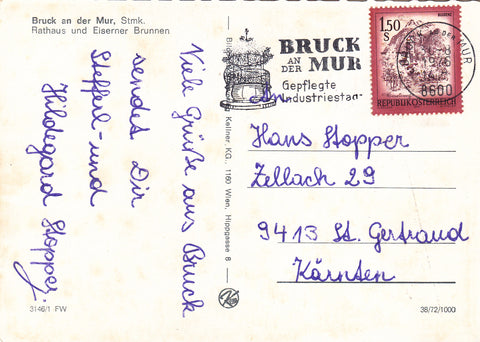 Bruck an der Mur, Stmk.
Rathaus und Eiserner Brunnen
Viele Grüße aus Bruck
sendet Dir
Stefferl- und
Hildegard Stopper.
3146/1 FW
Kellner, KG., 1160 Wien, Hippgasse 8
BRUCK
AN
DER MUR
Gepflegte
Industriestadt
1,50
S
REPUBLIK ÖSTERREICH
8600
An
Hans Stopper
Zellach 29
9413 St. Gertraud
Kärnten
38/72/1000